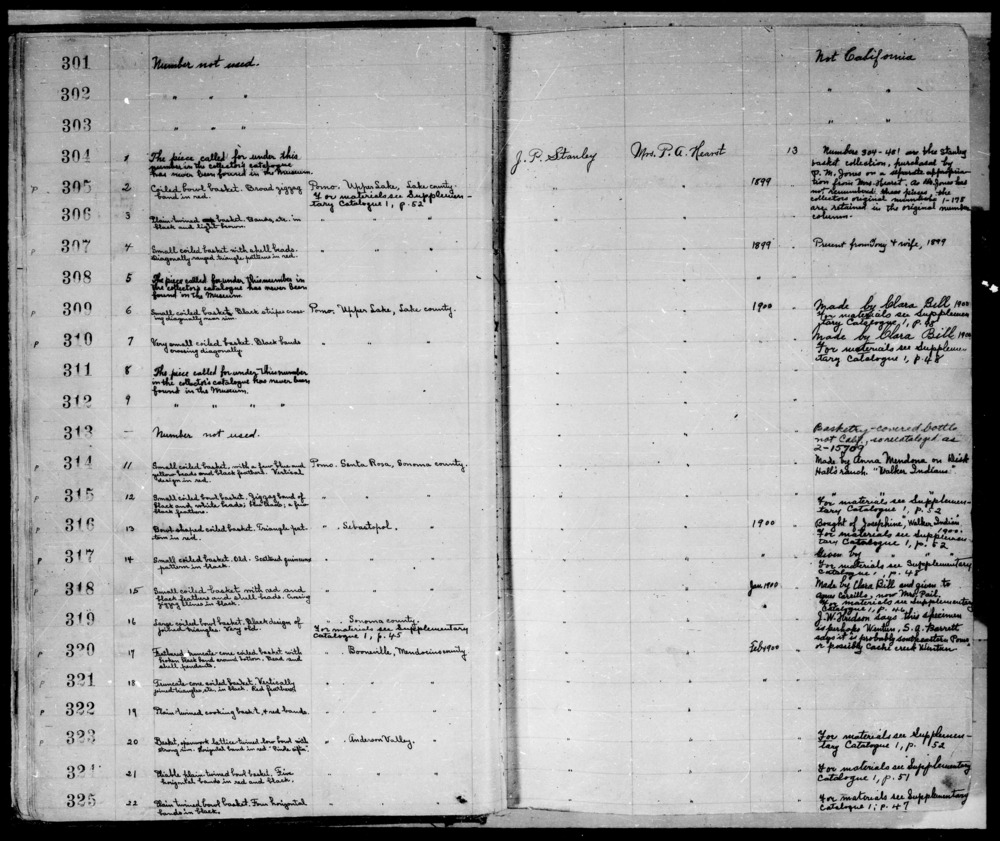 301 Number not used. Not California
302 " " " " "
303 " " " " "
304 1 The piece called for under this
number in the collector's catalogue
has never been found in the Museum.
J. P. Stanley Mrs. P. A. Hearst 13
Number 304-481 are the Stanley
basket collection, purchased by
P. M. Jones on a separate appropria-
tion from Mrs. Hearst. As Mr. Jones has
not renumbered these pieces, the
collectors original numbers 1-178
are retained in the original number
column.
P 305 2 Coiled bowl basket. Broad zigzag
band in red.
Pomo. Upper Lake, Lake county.
For materials see Supplemen-
tary Catalogue 1, p. 52
" " 1899 "
306 3 Plain twined basket. Bands, etc. in
black and light brown.
" " "
P 307 4 Small coiled basket with shell beads.
Diagonally ranged triangle pattern in red.
" " " 1899 " Present from Tony & wife, 1899
308 5 The piece called for under this number in
the collector's catalogue has never been
found in the Museum
P 309 6 Small coiled basket. Black stripes cross-
ing diagonally near rim.
Pomo. Upper Lake, Lake county.
1900 " Made by Clara Bill 1900
For materials see Supplemen-
tary Catalogue 1, p. 45
P 310 7 Very small coiled basket. Black bands
crossing diagonally.
" " "
Made by Clara Bill 1900
For materials see Supplemen-
tary Catalogue 1, p. 48
311 8 The piece called for under this number
in the collector's catalogue has never been
found in the Museum.
312 9 " " " "
313 - Number not used.
Basketry-covered bottle
not Calif., so recataloged as
2-15709
P 314 11 Small coiled basket, with a few blue and
yellow beads and black feathers. Vertical
design in red.
Pomo. Santa Rosa, Sonoma county.
Made by Anna Mendona on
Hall's ranch. "Walker Indians."
P 315 12 Small coiled bowl basket. Zigzag band of
black and white beads; a few
black feathers.
" " "
For materials see Supplemen-
tary Catalogue 1, p. 52
P 316 13 Boat shaped coiled basket. Triangle pat-
tern in red.
" Sebastopol, "
1900 " Bought of Josephine, "Walker Indian" 1900.
For materials see Supplemen-
tary Catalogue 1, p. 52
P 317 14 Small coiled basket. Old. Scattered quincunx
pattern in black.
" " "
Given by " " "
For materials see Supplementary
Catalogue 1, p. 48
P 318 15 Small coiled basket with red and
black feathers and shell beads. Crossing
zigzag lines in black.
" " "
Jan 1900 Made by Clara Bill and given to
Carillo, now Mrs.
For materials see Supplementary
Catalogue 1, p. 46
P 319 16 Large coiled bowl basket. Black design of
joined triangles. Very old.
" Sonoma county.
For materials see Supplementary
Catalogue 1, p. 45
J. W. Hudson says this specimen
is perhaps Wintun, S. A. Barrett
says it is probably southeastern Pomo
or possibly Cache creek Wintun
P 320 17 Flattened truncate-cone coiled basket with
broken black band around bottom. Bead and
shell pendants.
" Booneville, Mendocino county
Feb 1900 "
P 321 18 Truncate cone coiled basket. Vertically
joined triangles, etc. in black. Red feathers
" " "
P 322 19 Plain twined cooking basket, 4 red bands.
" " "
P 323 20 Basket, openwork lattice-twined low bowl with
strong rim. Horizontal band in red.
" Anderson Valley. "
For materials see Supplemen-
tary Catalogue 1, p. 52
324 21 Pliable plain-twined bowl basket. Five
horizontal bands in red and black.
" " "
For materials see Supplementary
Catalogue 1, p. 51
P 325 22 Plain twined bowl basket. Four horizontal
bands in black.
" " "
For materials see Supplementary
Catalogue 1, p. 47